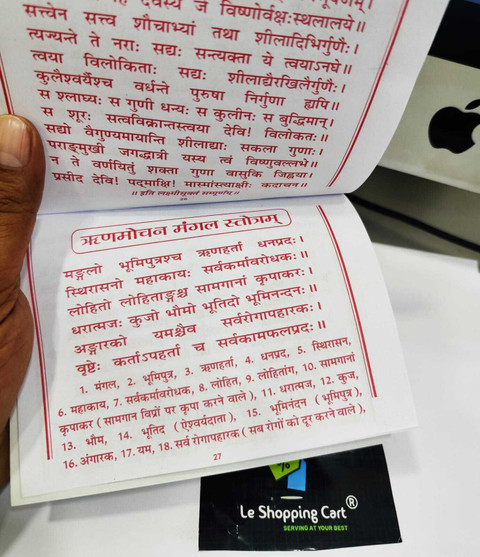 विष्णोर्वक्षःस्थलालये॥
सत्त्वेन सत्त्व शौचाभ्यां तथा शीलादिभिर्गुणैः।
त्यज्यन्ते ते नराः सद्यः सन्त्यक्ता ये त्वयाऽनघे॥
त्वया विलोकिताः सद्यः शीलाद्यैरखिलैर्गुणैः।
कुलैश्वर्नैश्च वर्धन्ते पुरुषा निर्गुणा ह्यपि॥
स श्लाघ्यः स गुणी धन्यः स कुलीनः स बुद्धिमान्।
स शूरः सत्वविक्रान्तस्त्वया देवि! विलोकतः॥
सद्यो वैगुण्यमायान्ति शीलाद्याः सकला गुणाः।
पराङ्मुखी जगद्धात्री यस्य त्वं विष्णुवल्लभे॥
न ते वर्णयितुं शक्ता गुणा वासुकि जिह्वया।
प्रसीद देवि! पद्माक्षि! मास्मांस्त्याक्षीः कदाचन॥
॥ इति लक्ष्मीसूक्तं सम्पूर्णम्॥
ऋणमोचन मंगल स्तोत्रम्
मङ्गलो भूमिपुत्रश्च ऋणहर्ता धनप्रदः।
स्थिरासनो महाकायः सर्वकर्मावरोधकः॥
लोहितो लोहिताङ्गश्च सामगानां कृपाकरः।
धरात्मजः कुजो भौमो भूतिदो भूमिनन्दनः॥
अङ्गारको यमश्चैव सर्वरोगापहारकः।
वृष्टेः कर्ताऽपहर्ता च सर्वकामफलप्रदः॥
1. मंगल, 2. भूमिपुत्र, 3. ऋणहर्ता, 4. धनप्रद, 5. स्थिरासन,
6. महाकाय, 7. सर्वकर्मावरोधक, 8. लोहित, 9. लोहितांग, 10. सामगानां
कृपाकर (सामगान विप्रों पर कृपा करने वाले), 11. धरात्मज, 12. कुज,
13. भौम, 14. भूतिद (ऐश्वर्यदाता), 15. भूमिनंदन (भूमिपुत्र),
16. अंगारक, 17. यम, 18. सर्व रोगापहारक (सब रोगों को दूर करने वाले),
27
%
Le Shopping Cart®
SERVING AT YOUR BEST